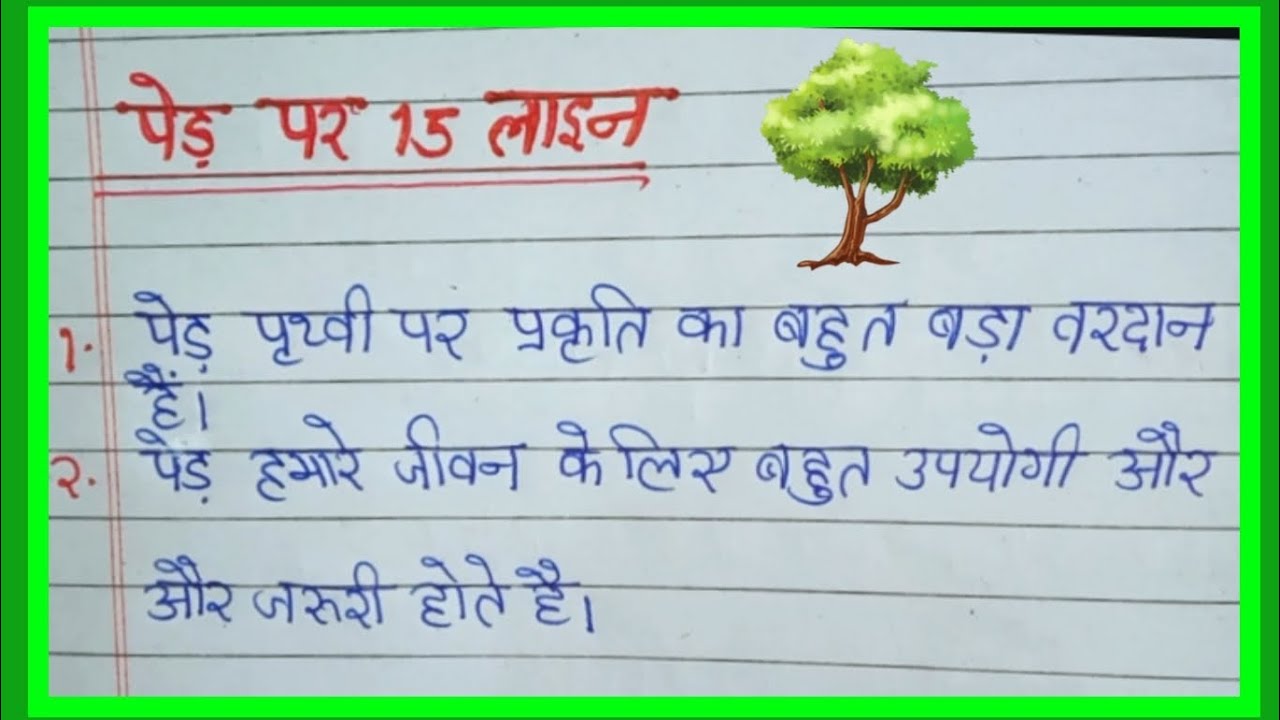 पेड़ पर 15 लाइन
1. पेड़ पृथ्वी पर प्रकृति का बहुत बड़ा वरदान
हैं।
2. पेड़ हमारे जीवन के लिए बहुत उपयोगी और
और जरुरी होते है।